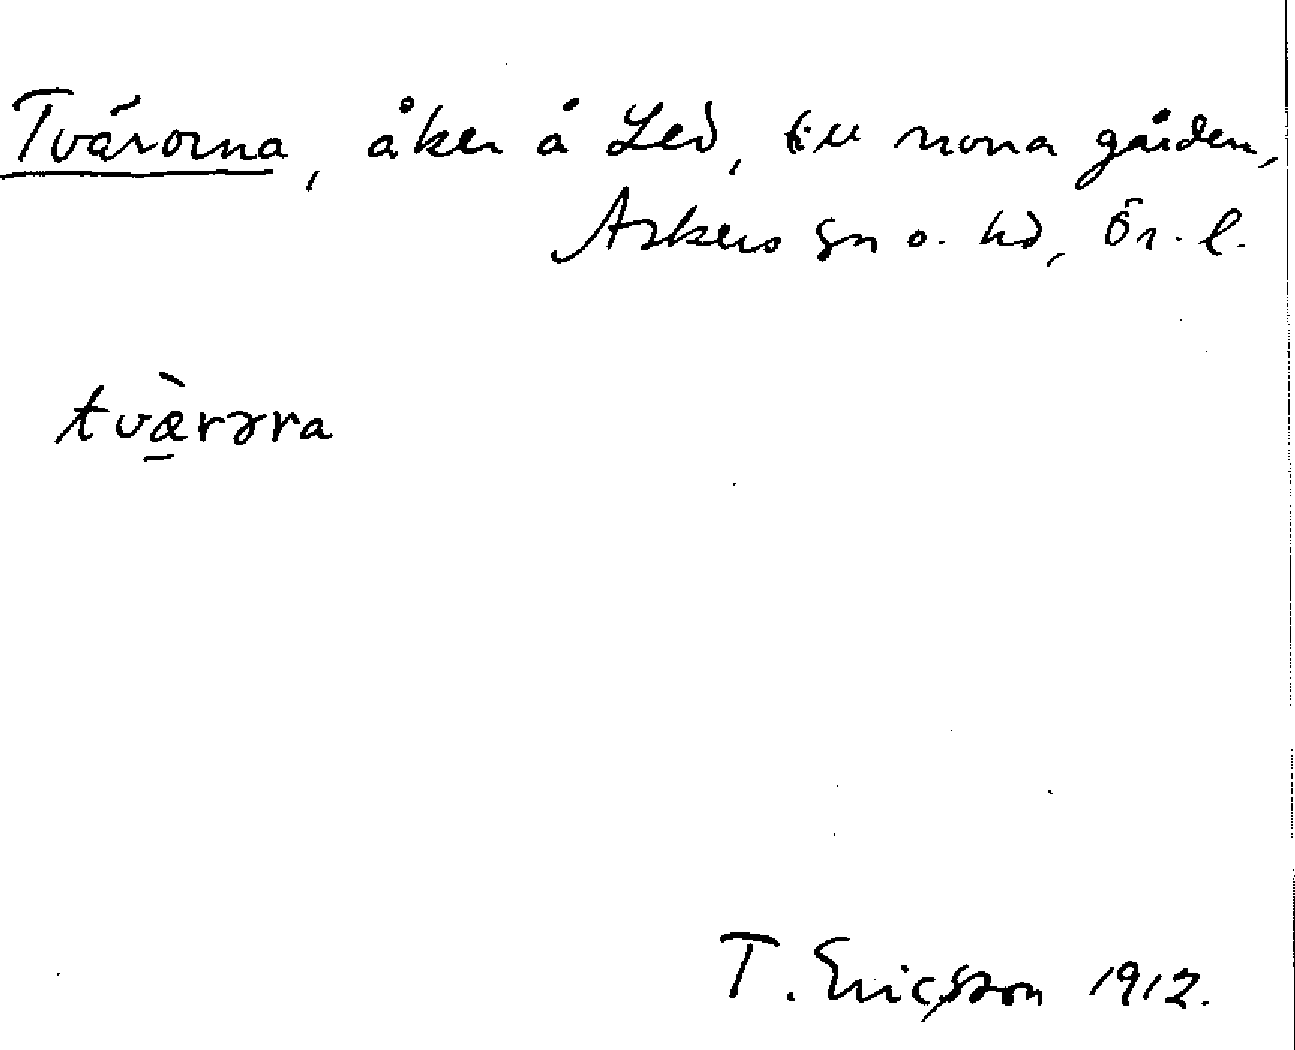 Tvärorna, åker å Led, till norra gården,
Askers sn o. hd, Ör. l.
tvæ̠̀rərra
T. Ericsson 1912.